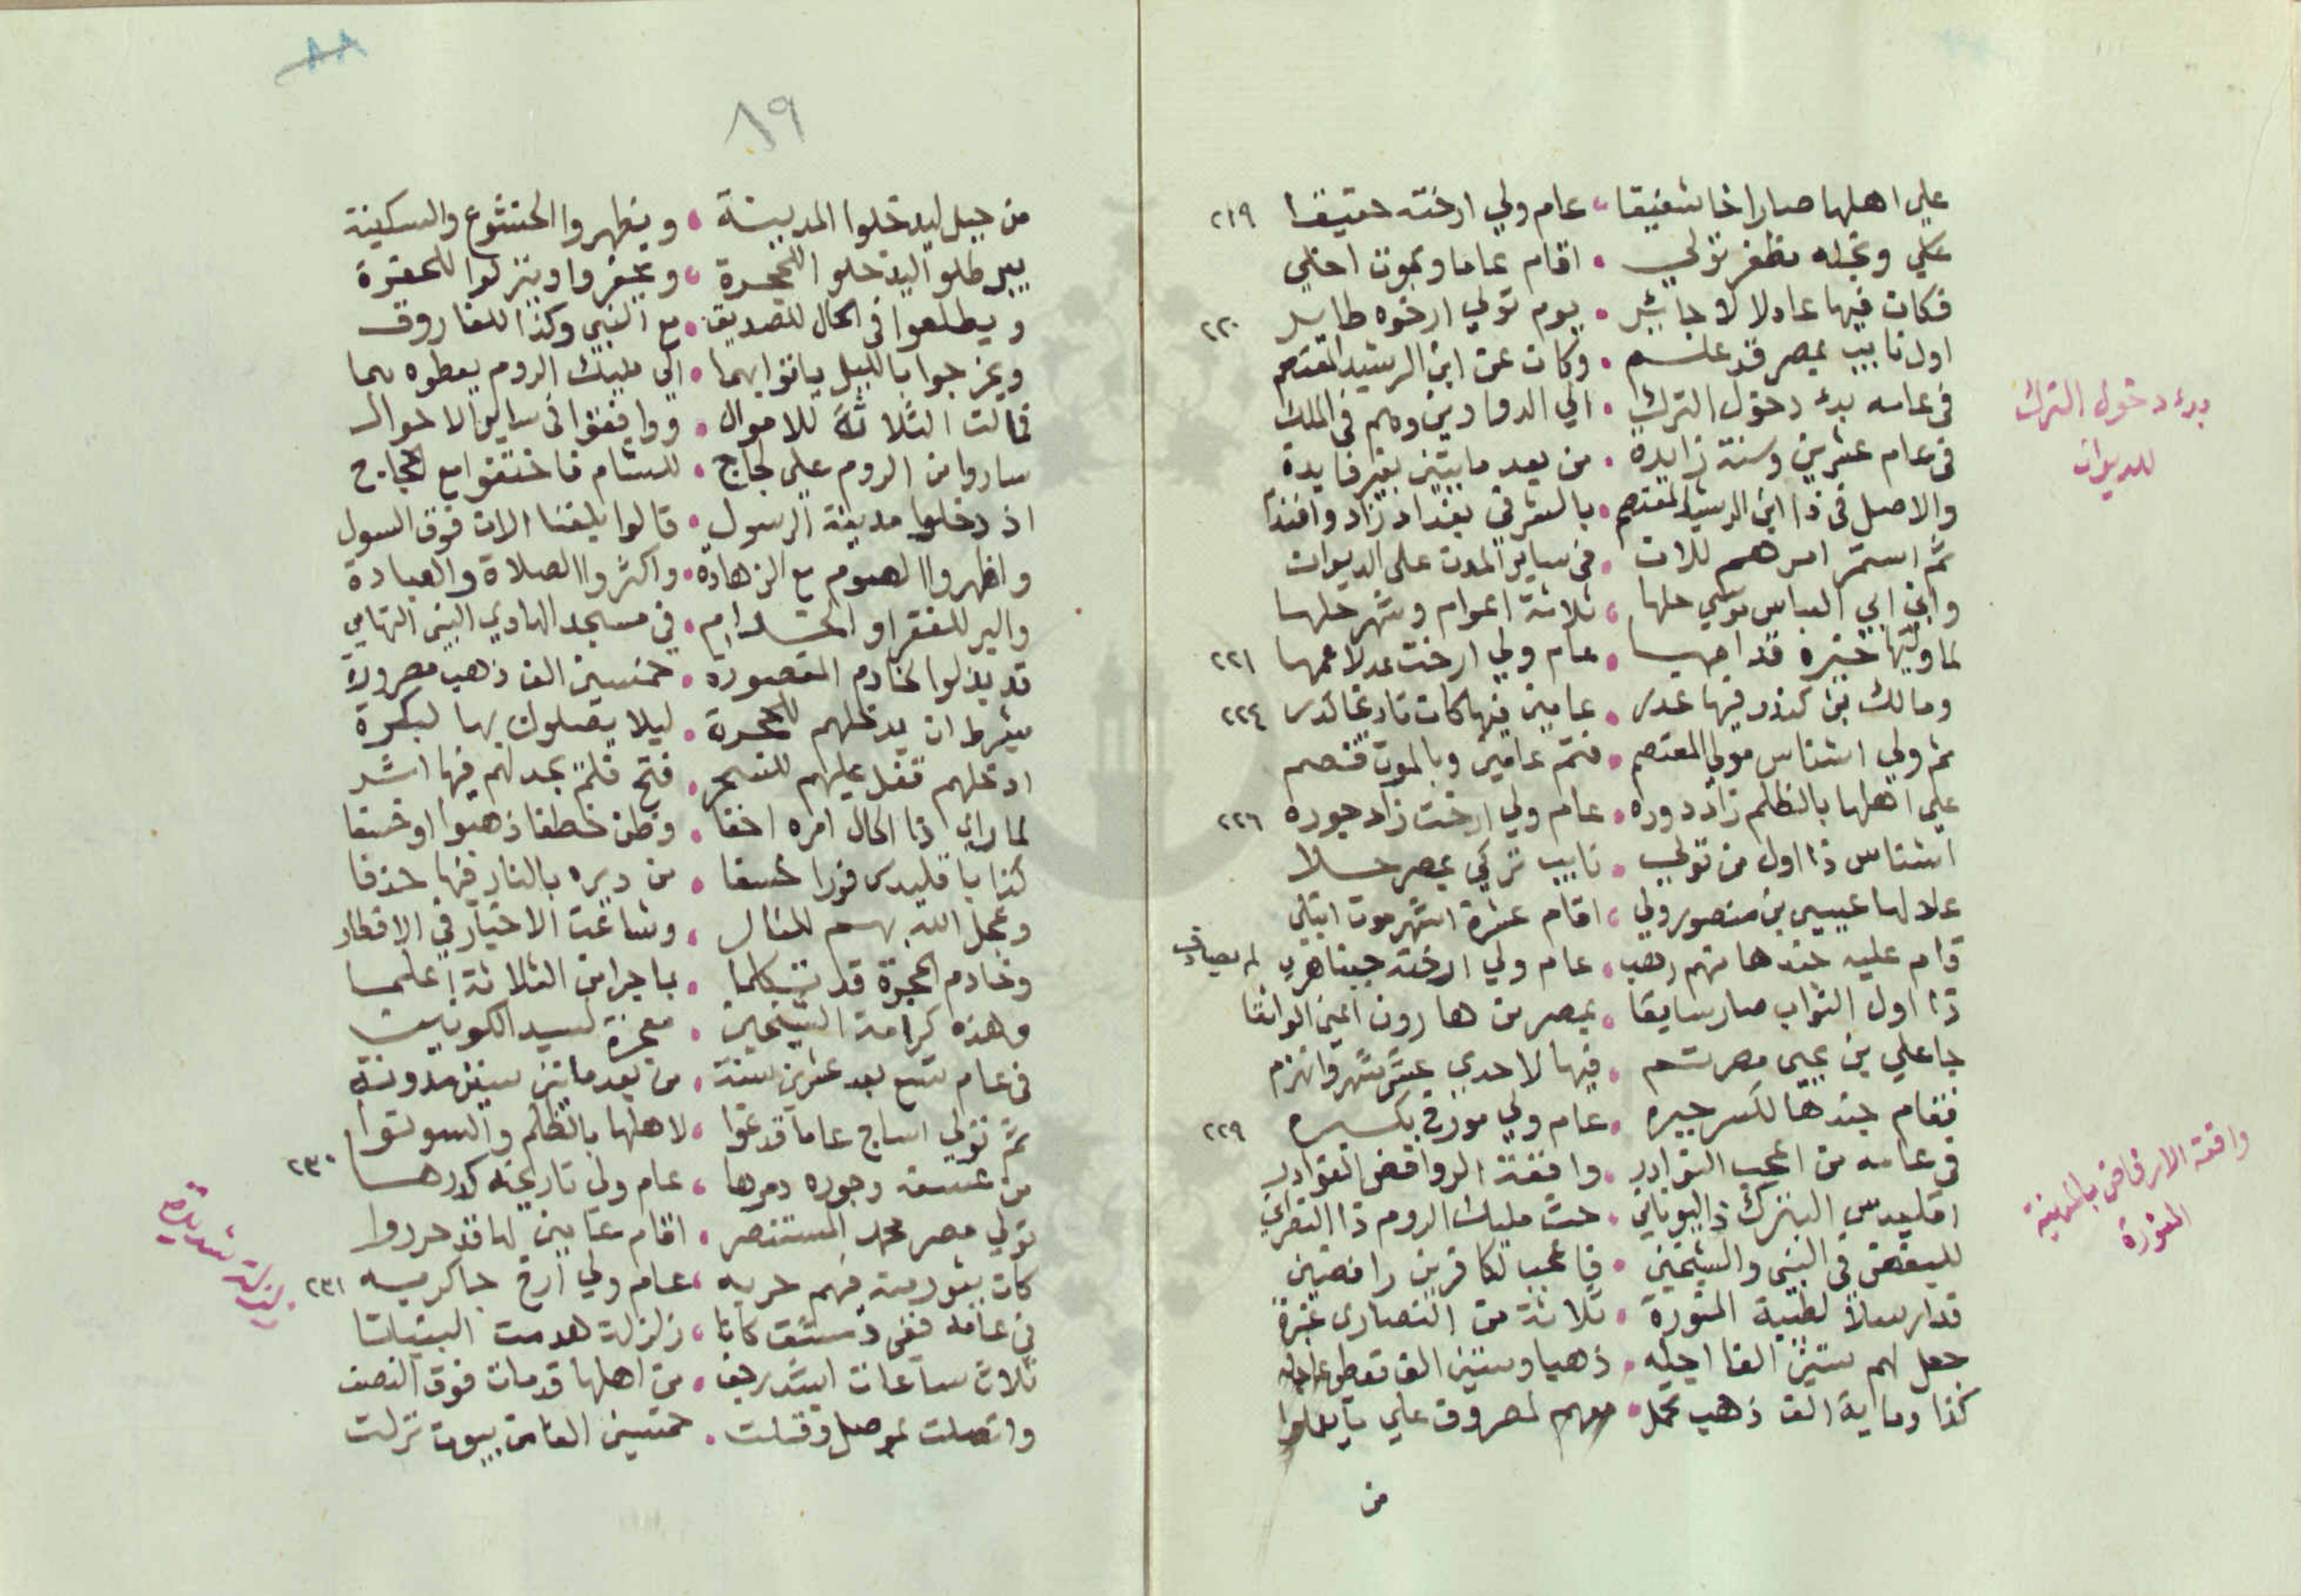 على اهلها صار اخا شقيقا • عام ولي ارخته حقيقا ٢١٩
علي ونجله مظفر تولي • اقام عاما وبموت اخلي
فكان فيها عادلا لا جاير • يوم تولي ارخوه طاير ٢٢٠
اول نايب بمصر قد علم • وكان عن ابن الرشيد المعتصم
في عامه بدء دخول الترك • الي الدواوين وهم في الملك
بدء دخول الترك
للديوان
في عام عشرين وسنة زايدة • من بعد مايتين بغير فايدة
والاصل في ذا ابن الرشيد المعتصم • بالشرق بغداد زاد
ثم استمر امرهم للان • في ساير المدن على الديوان
وابن ابي العباس موسي حلها • ثلاثة اعوام وشهر حلها
لما وليها خيره قد اجها • عام ولي ارخت عدلا عمها ٢٢١
ومالك بن كندر فيها عدى • عامين فيها كان ٢٢٤
ثم ولي اشناس مولي المعتصم • فتم عامين وبالموت قصم
على اهلها بالظلم زاد دوره • عام ولي ارخت زاد جوره ٢٢٦
اشناس ذا اول من تولي • نايب تركي بمصر حلا
علا لها عيسى بن منصور ولي • اقام عشرة اشهر موت ابتلي
قام عليه جندها منهم رهب • عام ولي ارخته
ذا اول النواب صار سابقا • بمصر من هارون اعني الواثقا
جا علي بن يحيى مصر تم • فيها لاحدي عشر شهر وانهزم
فقام جندها لكسر جبره • عام ولي مورخ بكسره ٢٢٩
في عامه من اعجب النوادر • واقعة الروافض الغوادر
واقعة الارفاض بالمدينة
المنورة
اقليدس البترك ذا اليوناني • حث مليك الروم ذا النصراني
للبغض في النبي والشيخين • فاعجب لكافرين رافضين
قد ارسلا لطيبة المنورة • ثلاثة من النصارى
جعل لهم ستين الفا اجله • ذهبا وستين الف تعطى عاجله
كذا وماية الف ذهب تحمل • معهم لمصروف على ما يعملوا
من
٨٩
من حيل ليدخلوا المدينة • ويظهروا الخشوع والسكينة
يبرطلوا ليدخلوا للحجرة • ويحفروا وينزلوا للحفرة
ويطلعوا في الحال للصديق • مع النبي وكذا للفاروق
ويخرجوا بالليل ياتوا بهما • الي مليك الروم يعطوه بما
فمالت الثلاثة للاموال • ووافقوا في ساير الاحوال
ساروا من الروم على لجاج • للشام فاختفوا مع الحجاج
اذ دخلوا مدينة الرسول • قالوا بلغنا الان فوق السول
واظهروا الصوم مع الزهادة • واكثروا الصلاة والعبادة
والبر للفقرا والخدام • في مسجد الهادي النبي التهامي
قد بذلوا لخادم المقصورة • خمسين الف ذهب مصرورة
بشرط ان يدخلهم للحجرة • ليلا يصلون بها لبكرة
ادخلهم قفل عليهم للسحر • فتح فلم يجد لهم فيها اثر
لما راي ذا الحال امره اخفا • وظن خطفا ذهبوا او خسفا
كذا باقليدس فورا خسفا • من ديره بالنار فيها حذفا
وعجل الله بهم للنار • وشاعت الاخبار في الاقطار
وخادم الحجرة قد تكلما • بما جرا من الثلاثة اعلما
وهذه كرامة الشيخين • معجزة لسيد الكونين
في عام تسع بعد عشرين سنة • من بعد مايتين سنين مدونة
ثم تولي اساج عاما قد عتوا • لاهلها بالظلم والسو نووا
من عسفه وجوره دمرها • عام ولي تاريخه كدرها ٢٣٠
تولي مصر محمد المستنصر • اقام عامين لها قد حرروا
كان بشورة فهم حربه • عام ولي ارخ حاكم به ٢٣١
في عامه ففي دمشق كانا • زلزلة هدمت البنيانا
زلزلة شديدة
ثلاث ساعات اشتد رجف • من اهلها قد مات فوق النصف
واتصلت لموصل وقتلت • خمسين الفا من بيوت نزلت